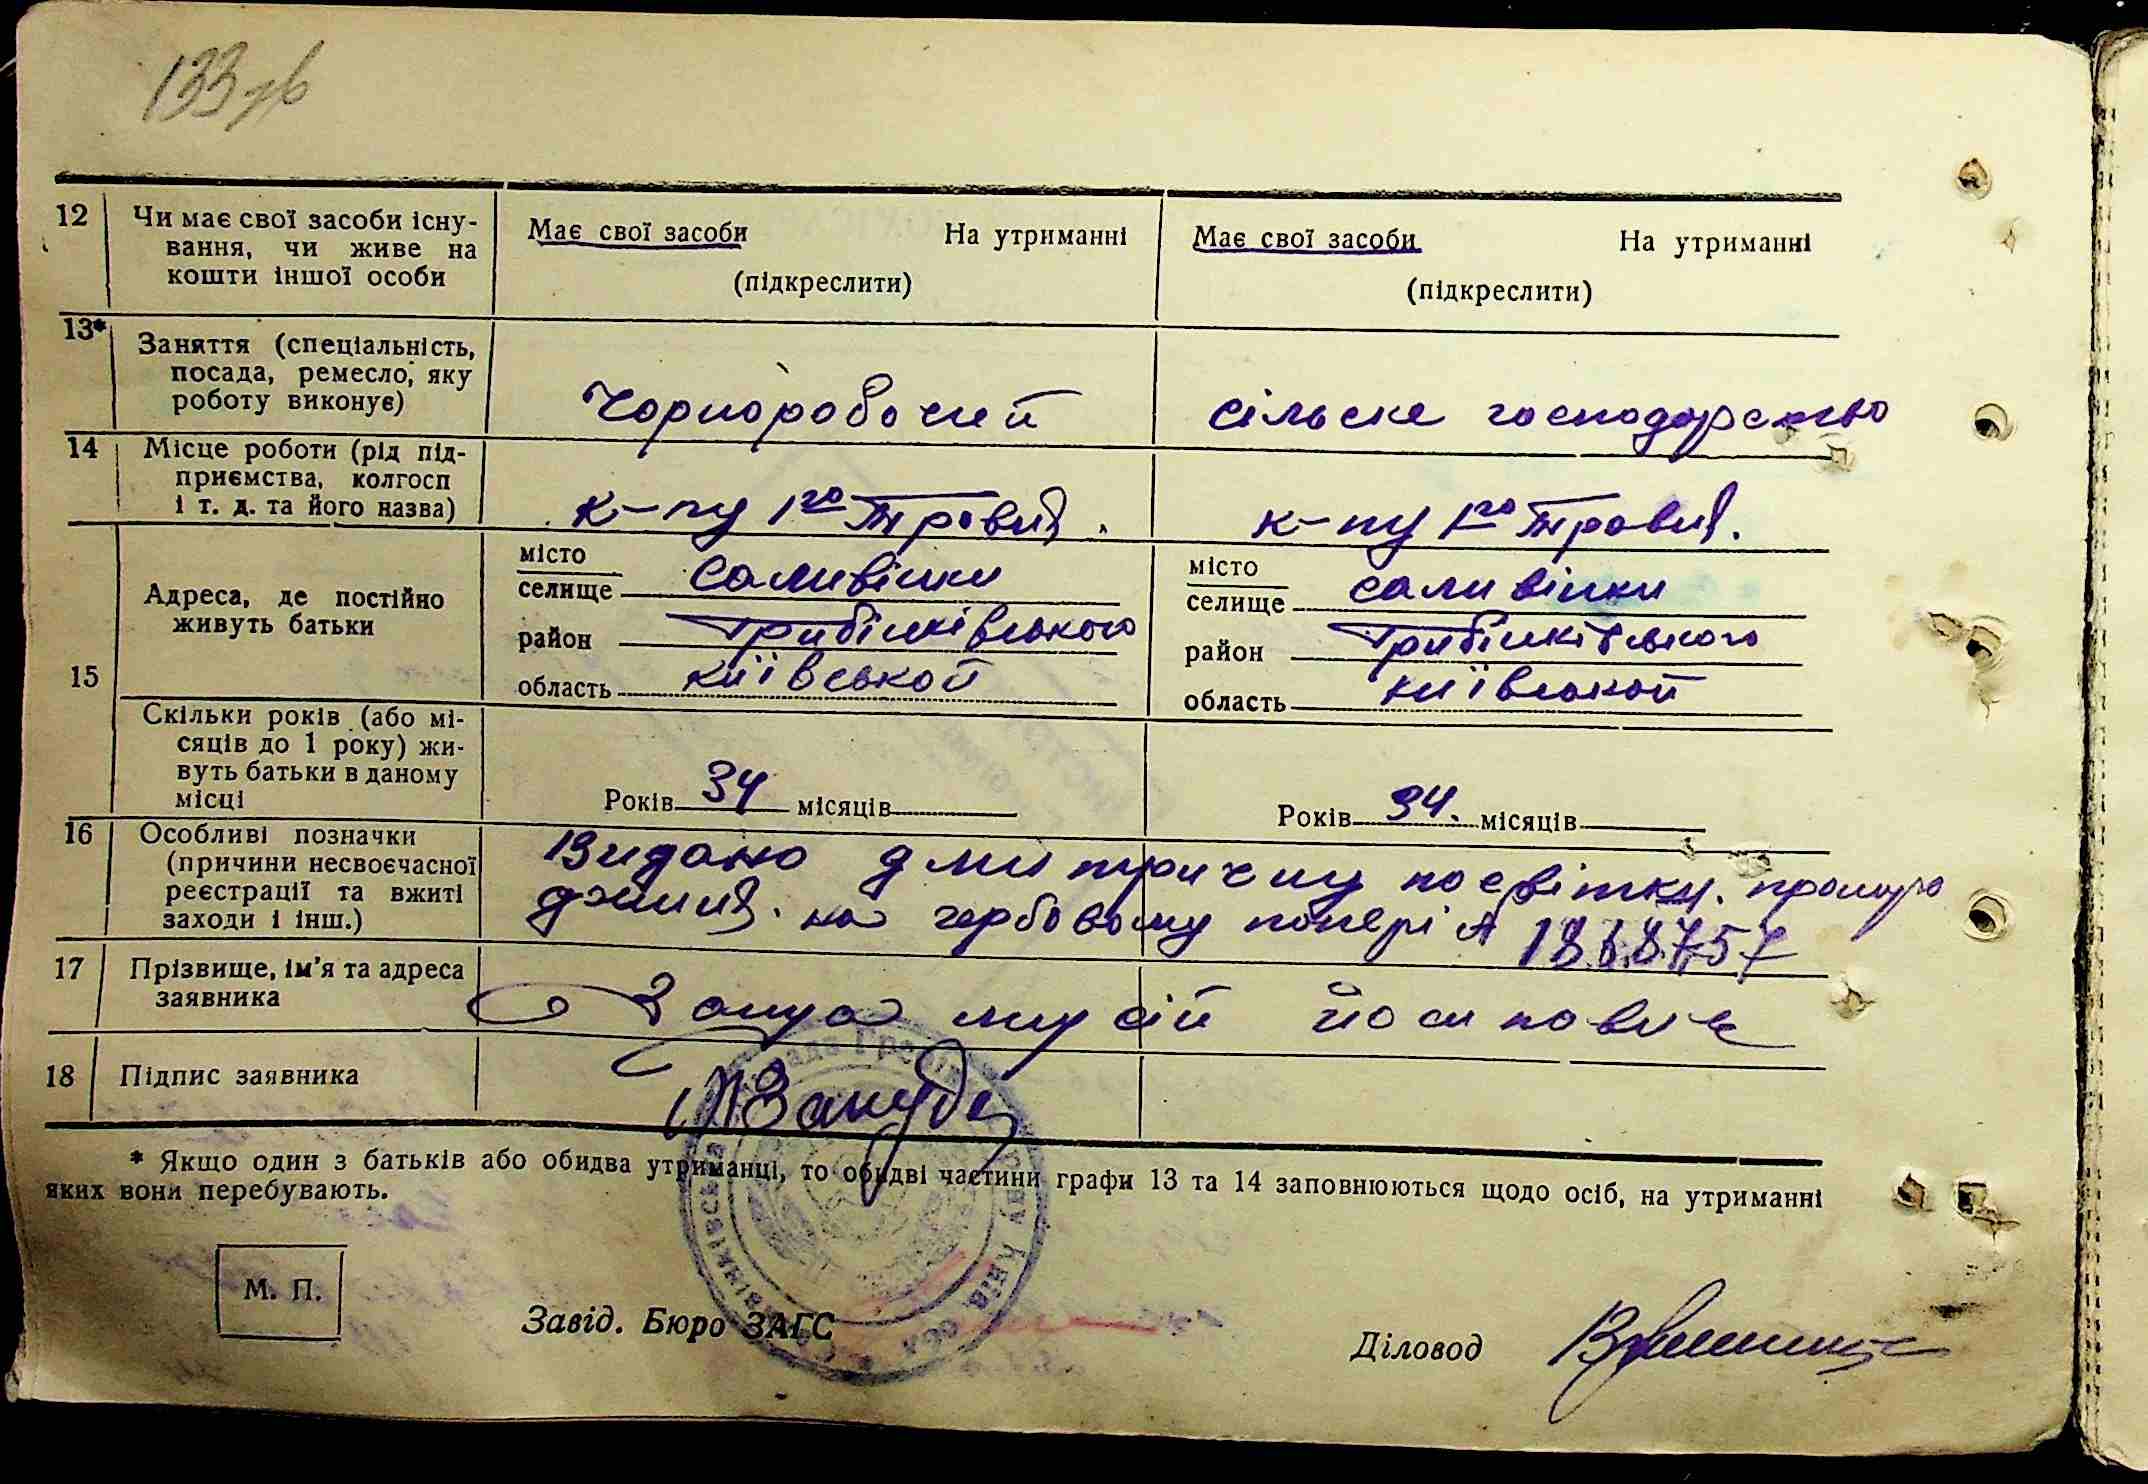 133 зв
12 Чи має свої засоби існу-
вання, чи живе на
кошти іншої особи
Має свої засоби На утриманні
(підкреслити)
Має свої засоби На утриманні
(підкреслити)
13* Заняття (спеціальність,
посада, ремесло, яку
роботу виконує)
Чорноробочий
сільске господарство
14 Місце роботи (рід під-
приємства, колгосп
і т. д. та його назва)
к-пу 1го Травня.
к-пу 1го Травня.
15 Адреса, де постійно
живуть батьки
місто
селище Саливінки
район Грибінківського
область київськой
місто
селище саливінки
район Грибінківського
область київськой
Скільки років (або мі-
сяців до 1 року) жи-
вуть батьки в даному
місці
Років 34 місяців
Років 34. місяців
16 Особливі позначки
(причини несвоєчасної
реєстрації та вжиті
заходи і інш.)
Видано посвітку.
на гербовому попері А 1868757
17 Прізвище, ім'я та адреса
заявника
мусій йосипович
18 Підпис заявника
* Якщо один з батьків або обидва утриманці, то обидві частини графи 13 та 14 заповнюються щодо осіб, на утриманні
яких вони перебувають.
М. П.
Завід. Бюро ЗАГС
Діловод